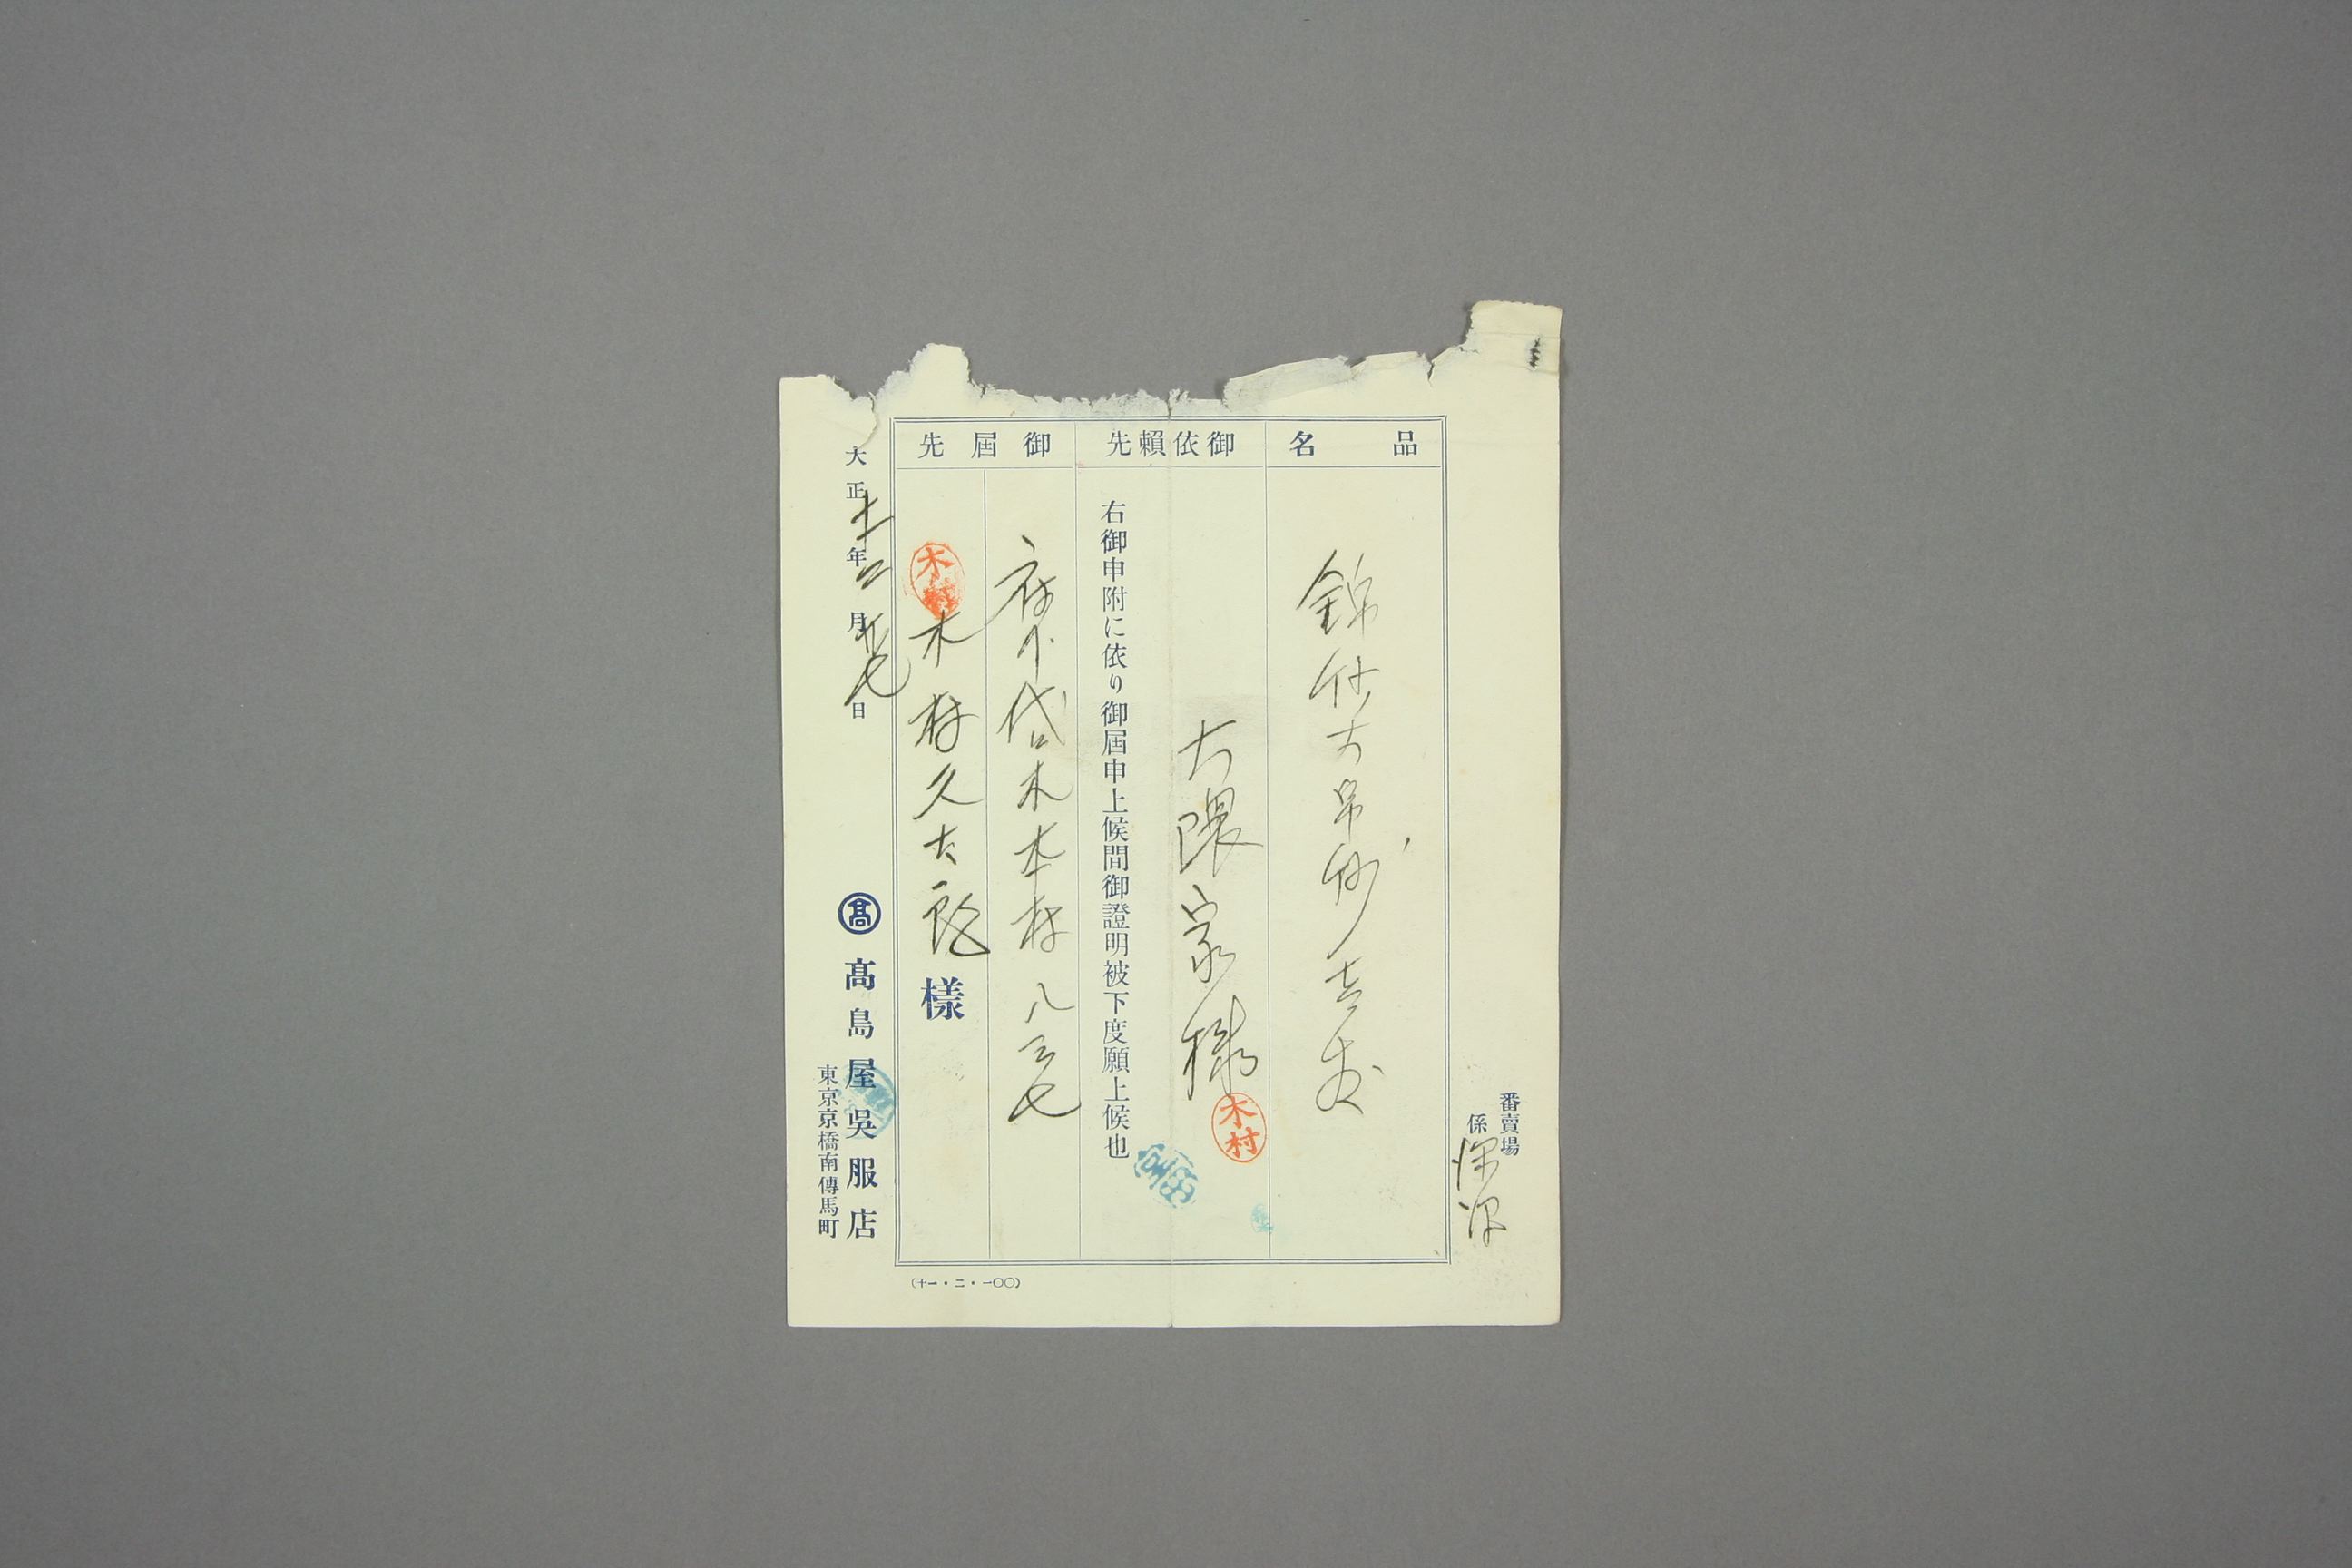 番賣場
係
品名
錦紗大帛紗壱
御依賴先
大隈家様
木村
右御申附に依り御屆申上候間御證明被下度願上候也
御屆先
府下代々木本村八三七
木村久太郎様
木村
大正十二年二月廿七日
髙
髙島屋吳服店
東京京橋南傳馬町
(十一・二・一〇〇)